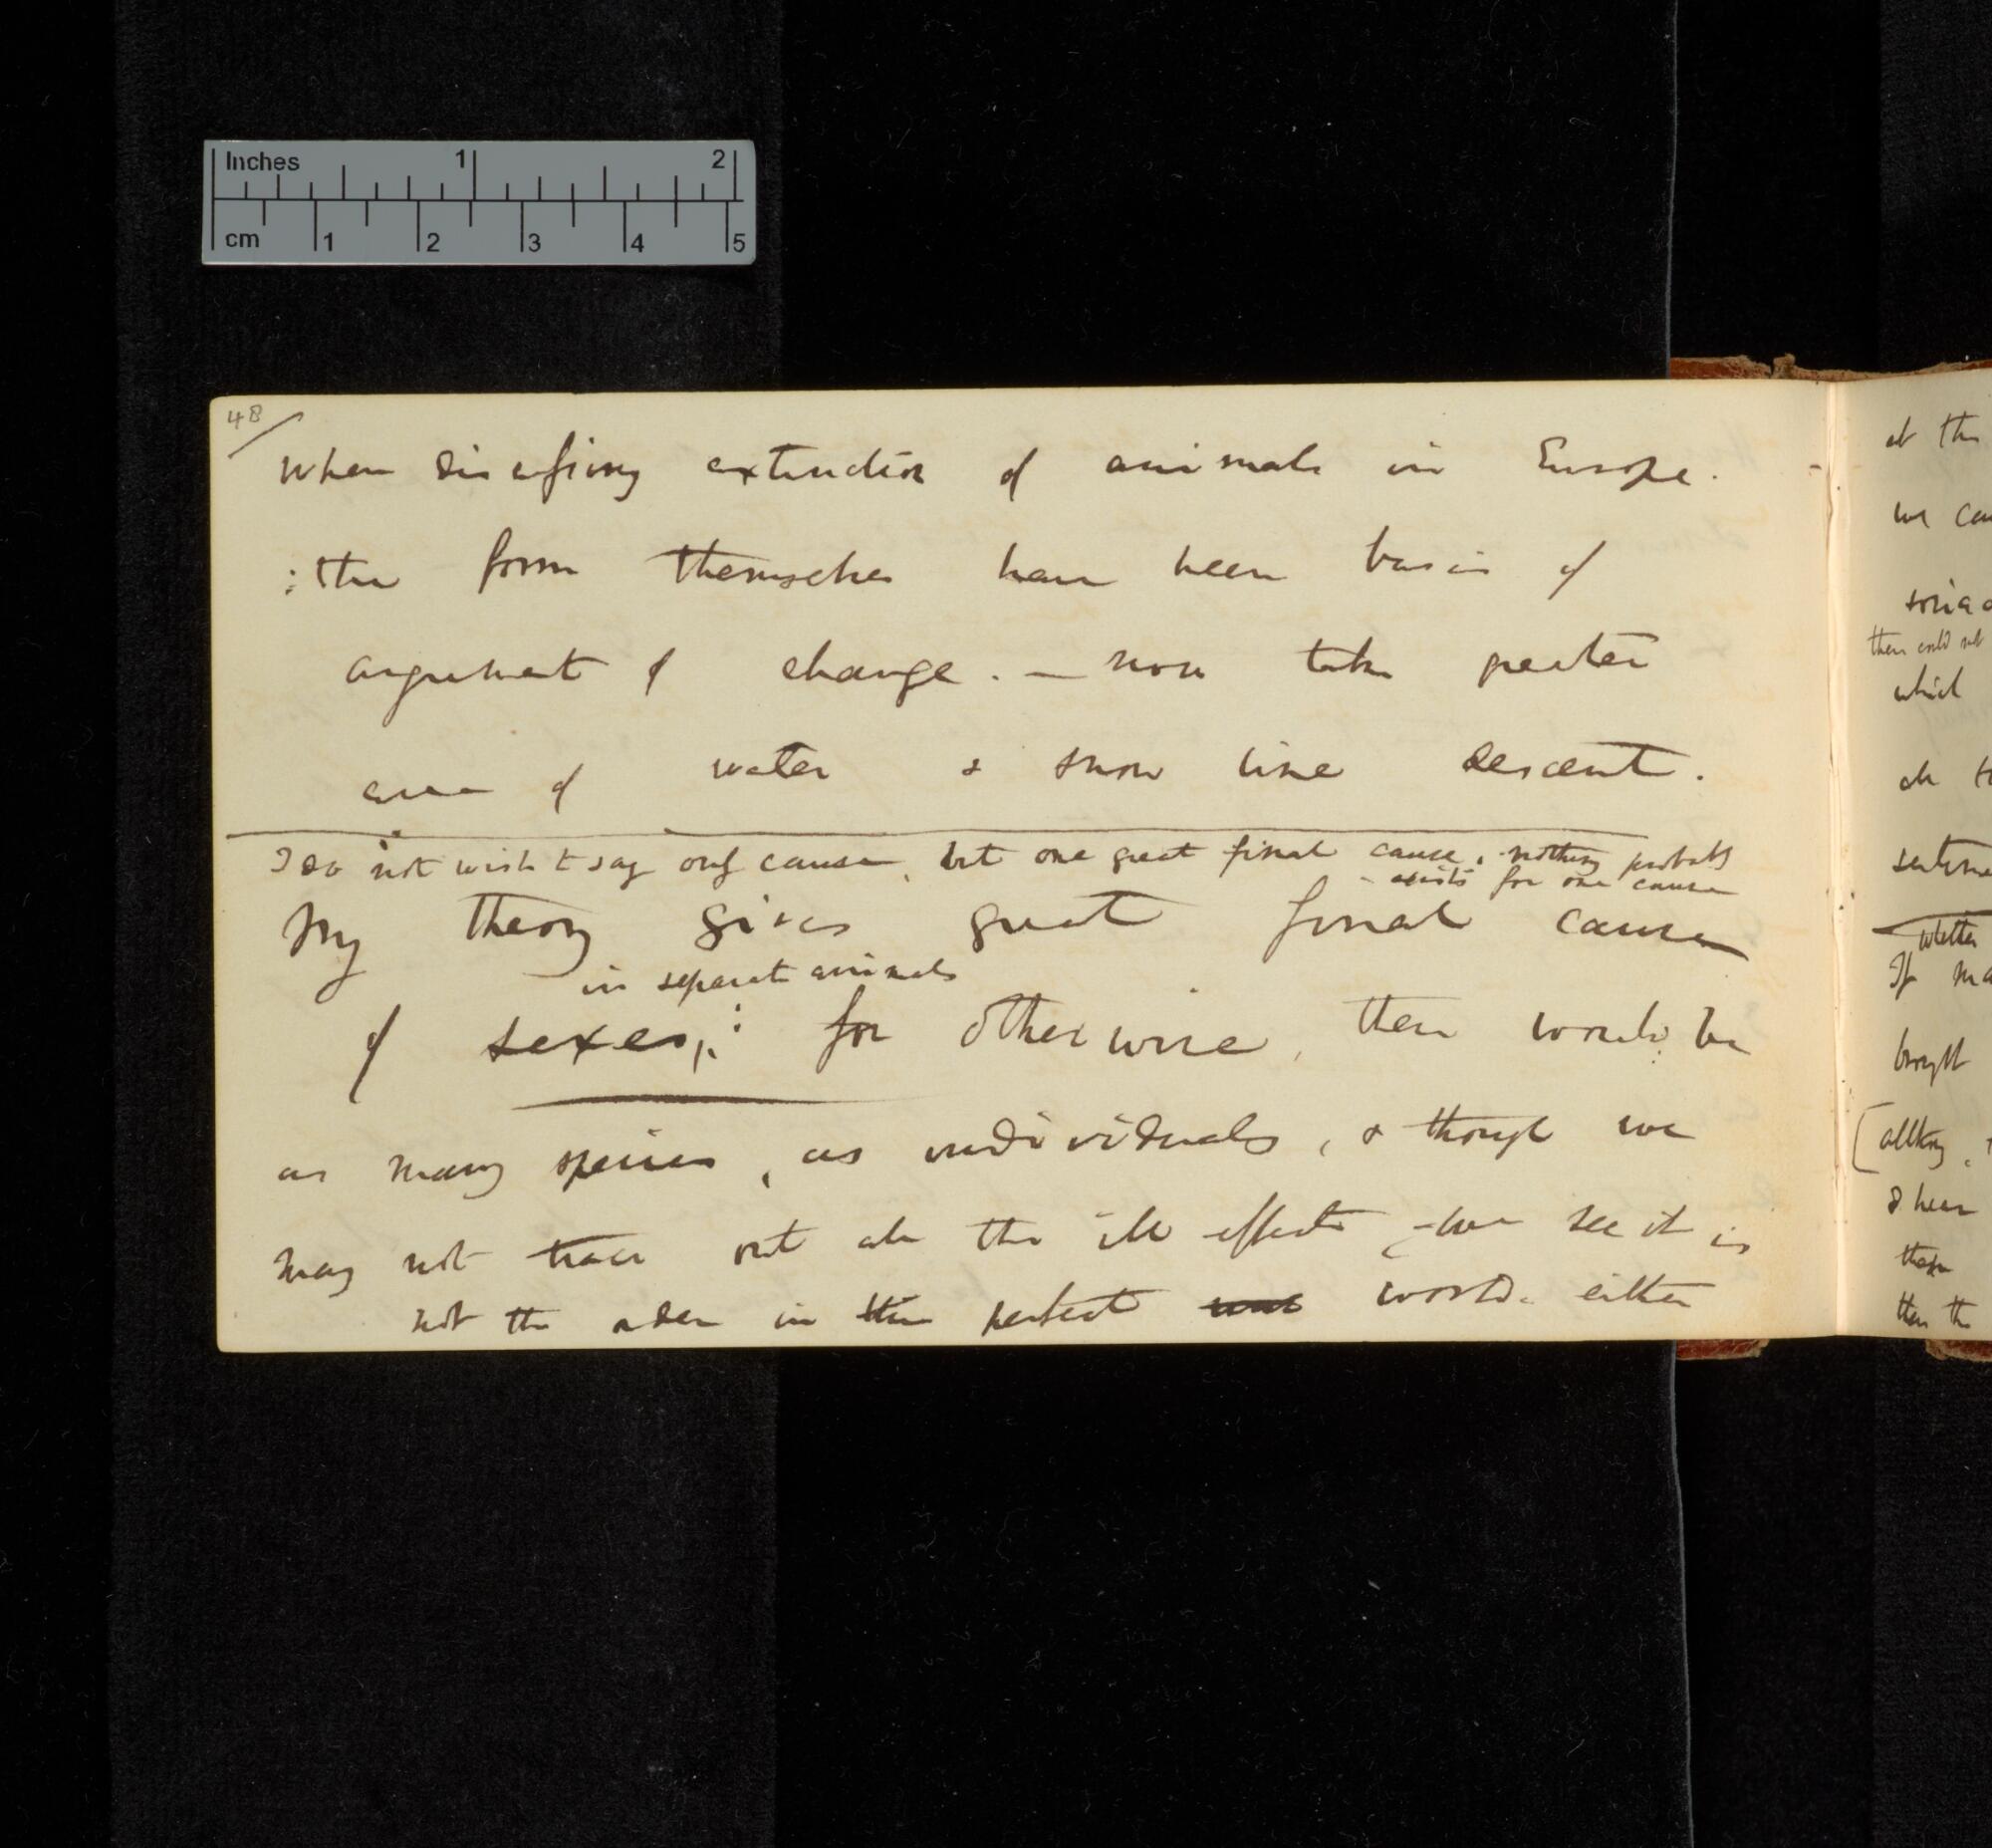 Inches 1 2
cm 1 2 3 4 5
48
When discussing extinction of animals in Europe.
: the forms themselves have been basis of
argument of change. — now take greater
area of water & snow line descent.
I do not wish to say only cause, but one great final cause, nothing probably
exists for one cause
My theory gives great final cause
in separate animals
of sexes,: for otherwise, there would be
as many species, as individuals, & though we
may not trace out all the ill effects – we see it is
not the order in the perfect world. either
at the
we
then could not
which
whether
If
brought
& hear
then the